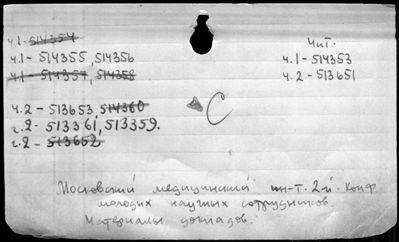 ч.1- 514354
ч.1- 514355, 514356
ч.1- 514357, 514358
ч.2- 513653, 514360
ч.2- 513361, 513359.
ч.2- 513652
С
Чит.
ч.1-514353
ч.2-513651
Московский медицинский ин-т. 2-й. Конф
молодых научных сотрудников.
Материалы докладов.